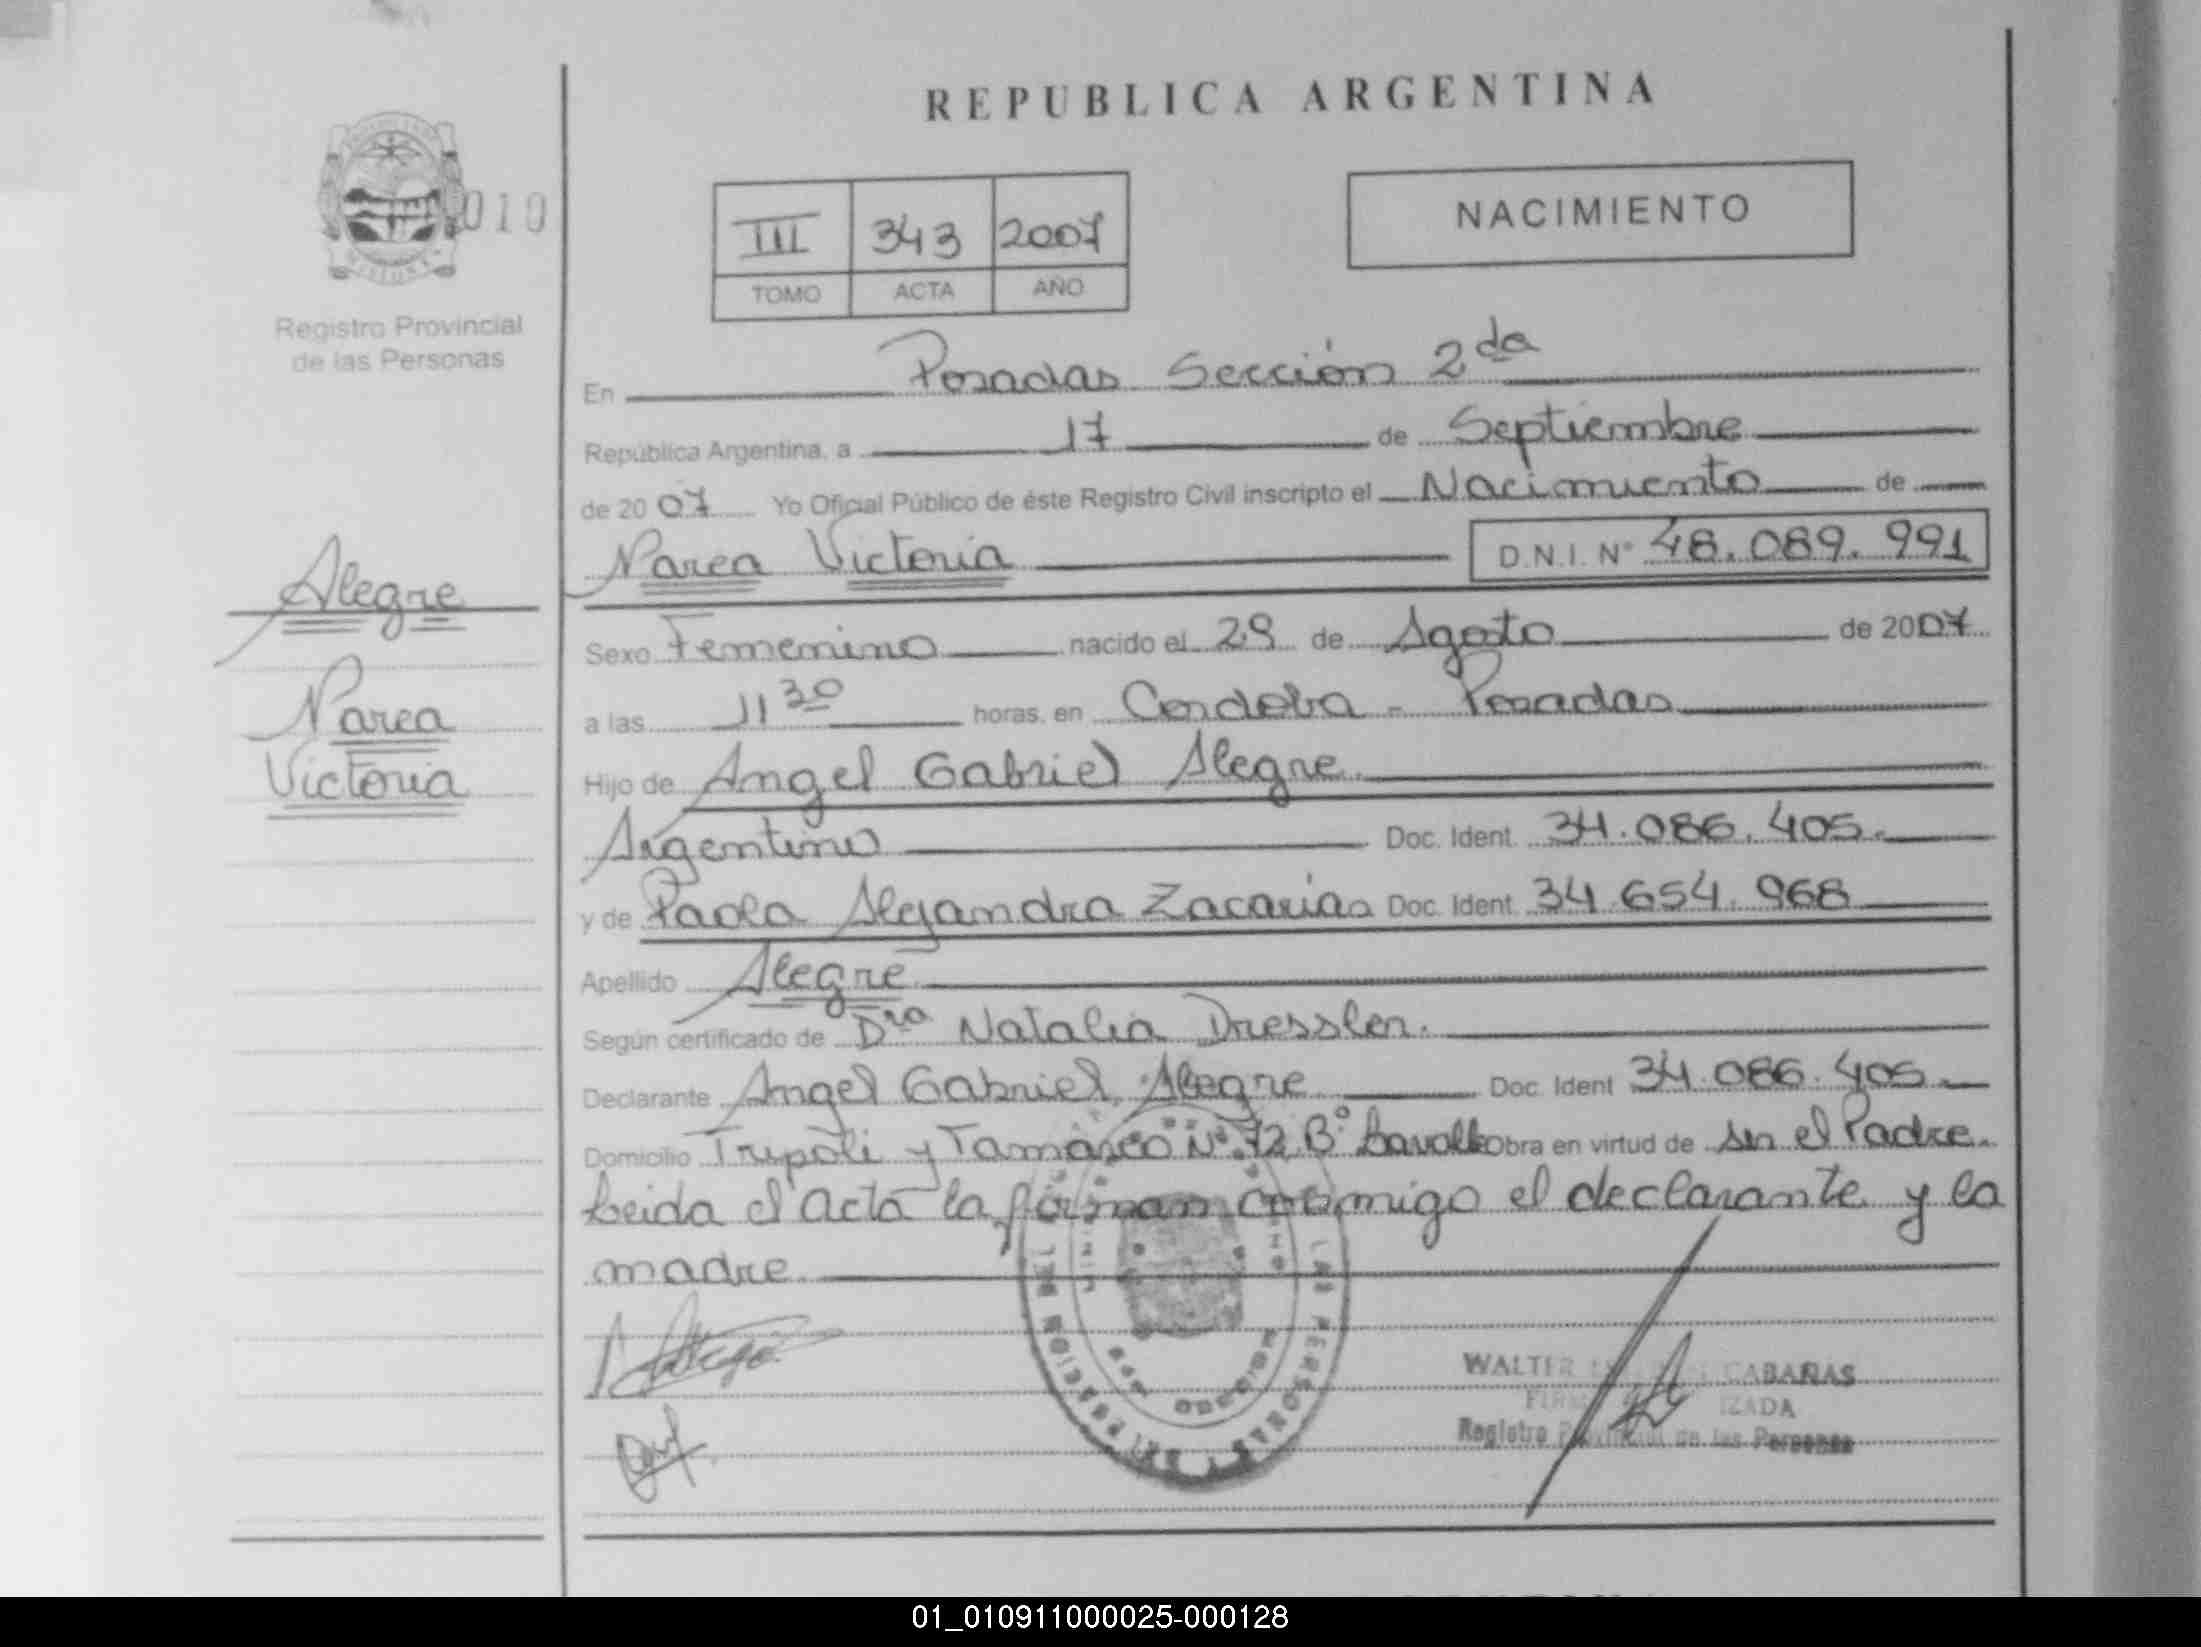 REPUBLICA ARGENTINA
010
MISIONES
Registro Provincial
de las Personas
III 343 2007
TOMO ACTA AÑO
NACIMIENTO
En Posadas Sección 2da
República Argentina, a 17 de Septiembre
de 2007 Yo Oficial Público de éste Registro Civil inscripto el Nacimiento de
Narea Victoria D.N.I. Nº 48.089.991
Alegre
Narea
Victoria
Sexo Femenino nacido el 29 de Agosto de 2007
a las 11 30 horas, en Cordoba - Posadas
Hijo de Angel Gabriel Alegre
Argentino Doc. Ident. 34.086.405.
y de Paola Alejandra Zacarias Doc. Ident. 34.654.968
Apellido Alegre
Según certificado de Dra Natalia Dressler.
Declarante Angel Gabriel Alegre Doc. Ident 34.086.405
Domicilio Tripoli y Tamareo Nº 72 Bº Lavalle obra en virtud de ser el Padre.
Leida el acta la firman conmigo el declarante y la
madre
WALTER CABAÑAS
Registro Provincial de las Personas
01_010911000025-000128